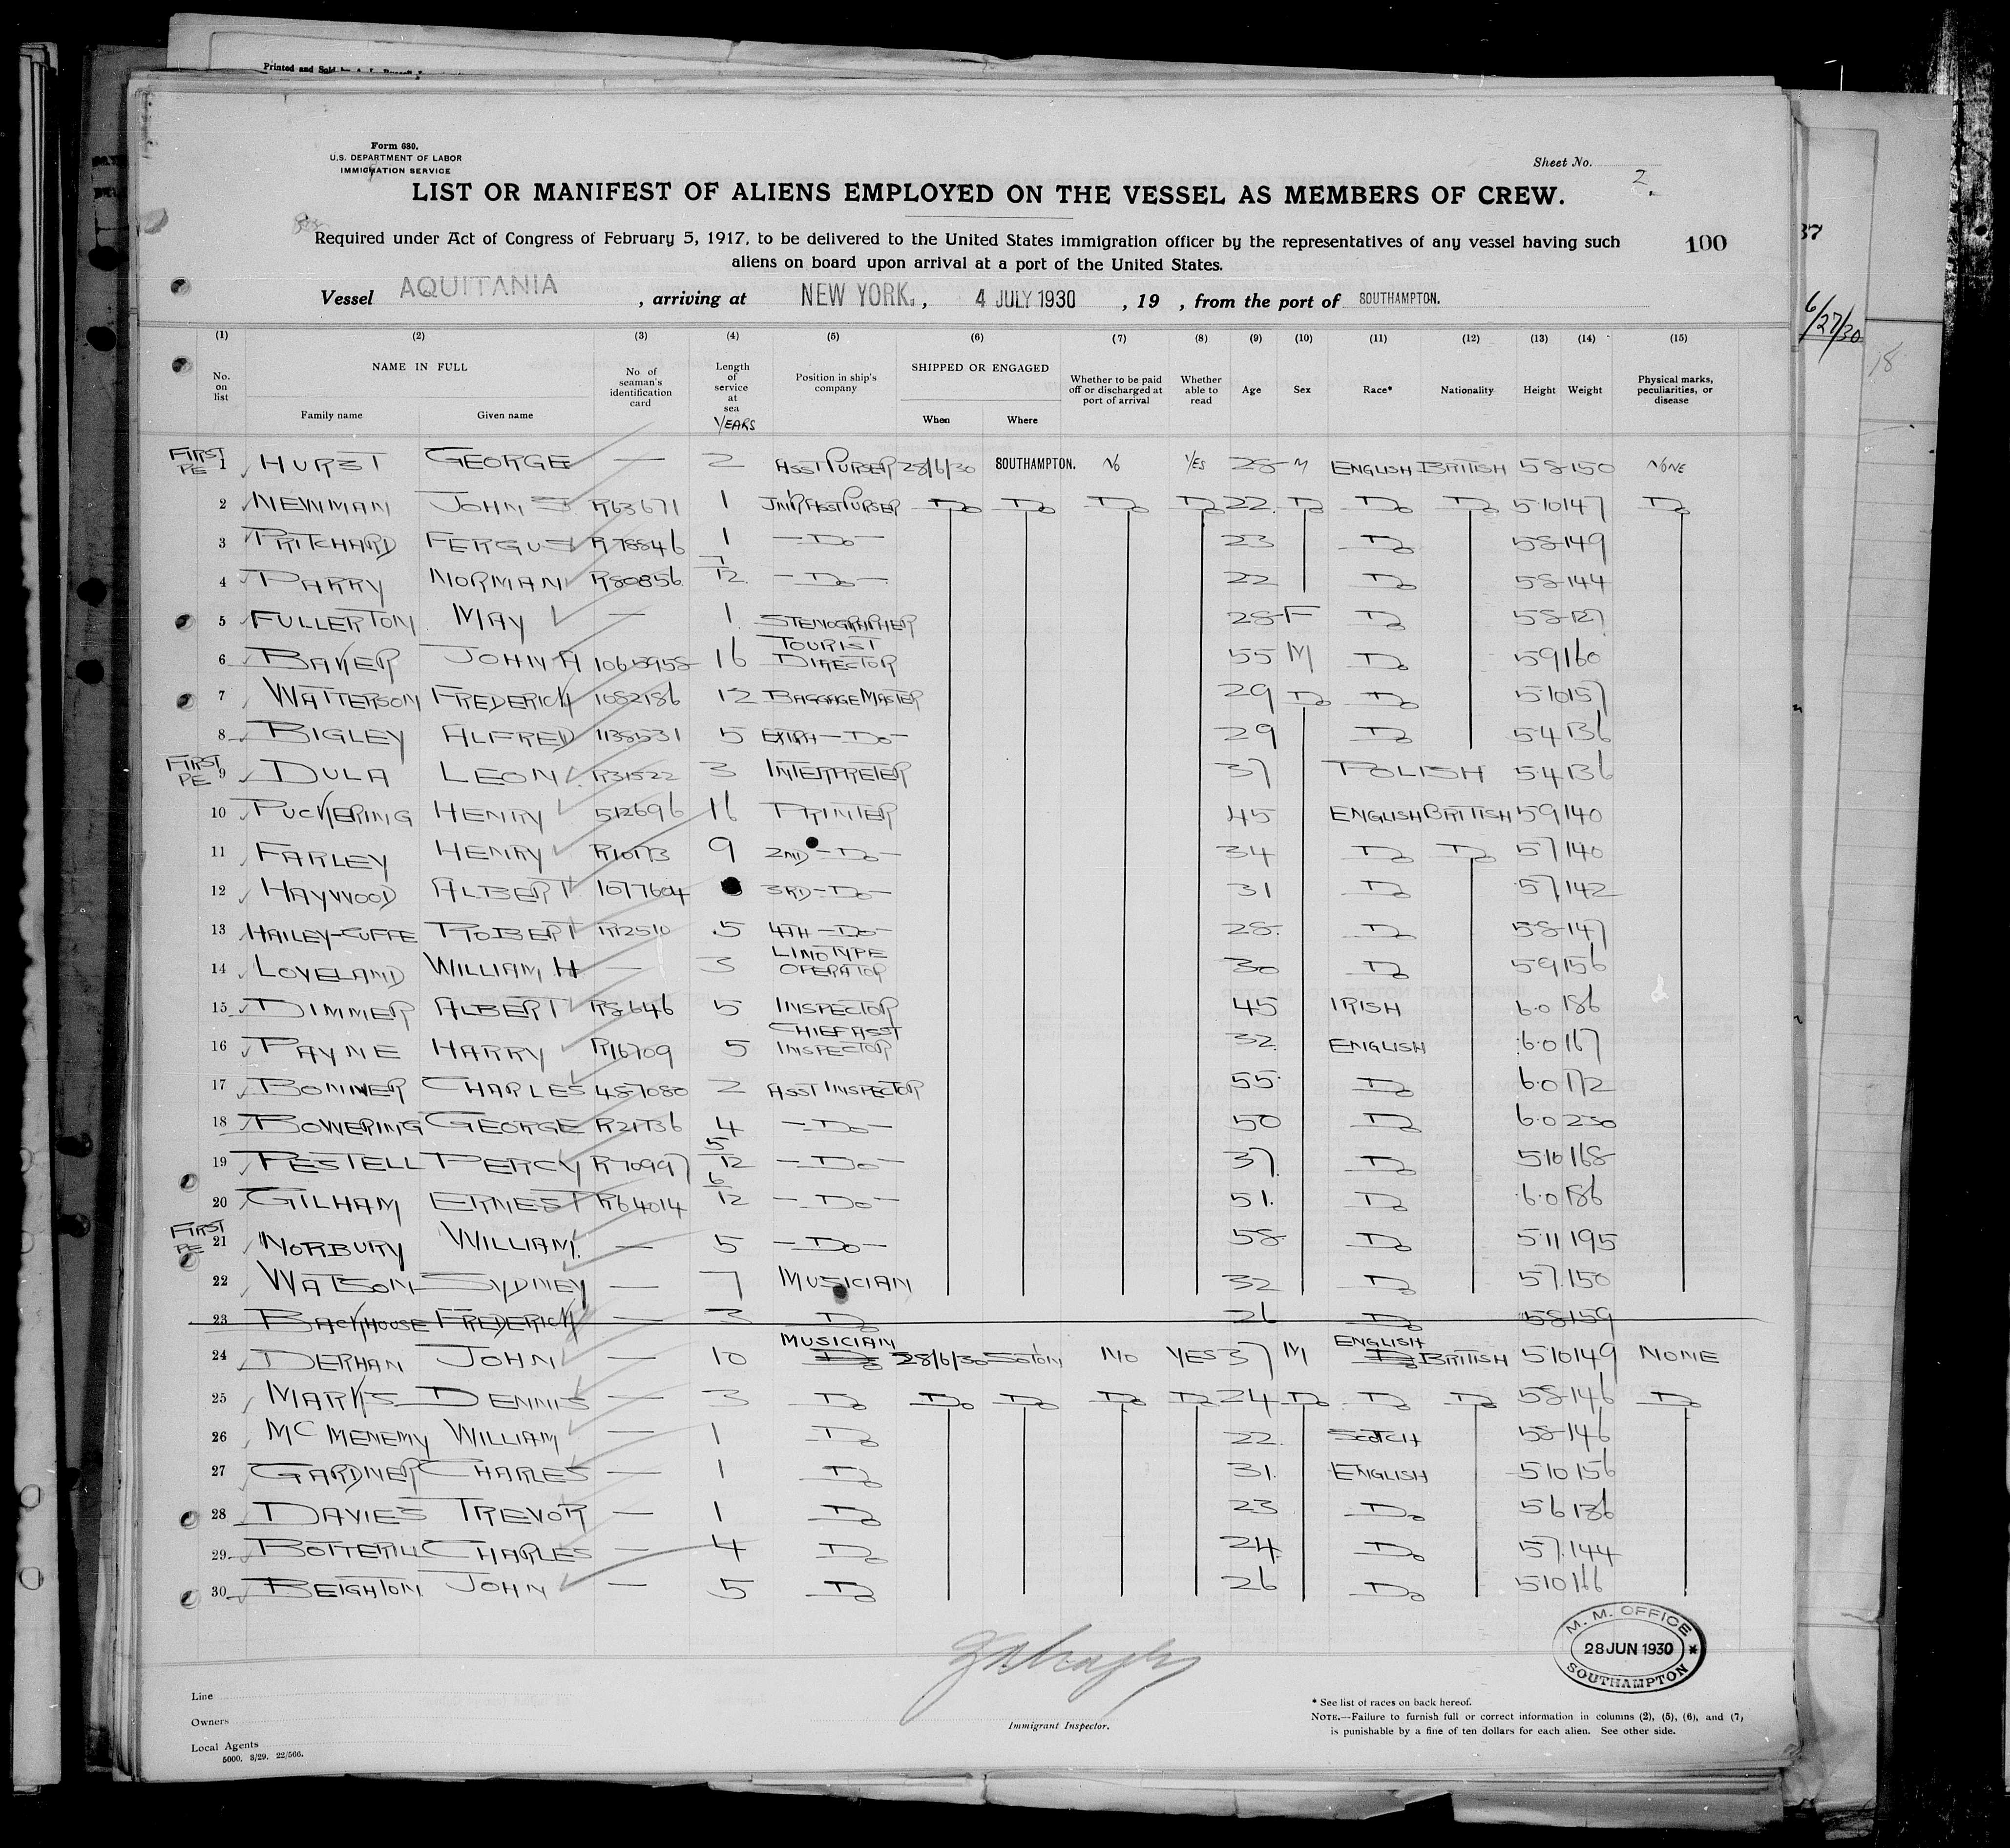 Printed and Sold by
Form 680.
U.S. DEPARTMENT OF LABOR
IMMIGRATION SERVICE
Sheet No. 2.
LIST OR MANIFEST OF ALIENS EMPLOYED ON THE VESSEL AS MEMBERS OF CREW.
Required under Act of Congress of February 5, 1917, to be delivered to the United States immigration officer by the representatives of any vessel having such
aliens on board upon arrival at a port of the United States.
100
37
6/27/30
18
Vessel AQUITANIA, arriving at NEW YORK., 4 JULY 1930, 19 , from the port of SOUTHAMPTON.
(1) (2) (3) (4) (5) (6) (7) (8) (9) (10) (11) (12) (13) (14) (15)
No. on list NAME IN FULL Family name Given name No. of seaman's identification card Length of service at sea YEARS Position in ship's company SHIPPED OR ENGAGED When Where Whether to be paid off or discharged at port of arrival Whether able to read Age Sex Race* Nationality Height Weight Physical marks, peculiarities, or disease
FIRST PE 1 HURST GEORGE — 2 ASST PURSER 28/6/30 SOUTHAMPTON. NO YES 28 M ENGLISH BRITISH 5 8 150 NONE
2 NEWMAN JOHN S R63671 1 JNR ASST PURSER Do Do Do Do 22 Do Do Do 5 10 147 Do
3 PRITCHARD FERGUS R78846 1 — Do — 23 Do 5 8 149
4 PARRY NORMAN R80856 7/12 — Do — 22 Do 5 8 144
5 FULLERTON MAY — 1 STENOGRAPHER 28 F Do 5 8 127
6 BAKER JOHN A 1065958 16 TOURIST DIRECTOR 55 M Do 5 9 160
7 WATTERSON FREDERICK 1082186 12 BAGGAGE MASTER 29 Do Do 5 10 157
8 BIGLEY ALFRED 1138531 5 EXTRA — Do — 29 Do 5 4 136
FIRST PE 9 DULA LEON R31522 3 INTERPRETER 37 POLISH 5 4 136
10 PUCKERING HENRY 512696 16 PRINTER 45 ENGLISH BRITISH 5 9 140
11 FARLEY HENRY R10173 9 2ND — Do — 34 Do Do 5 7 140
12 HAYWOOD ALBERT 1077604 3RD — Do — 31 Do 5 7 142
13 HAILEY-CUFFE ROBERT R12510 5 4TH — Do — 28 Do 5 8 147
14 LOVELAND WILLIAM H — 3 LINOTYPE OPERATOR 30 Do 5 9 156
15 DIMMER ALBERT R8646 5 INSPECTOR 45 IRISH 6.0 186
16 PAYNE HARRY R16709 5 CHIEF ASST INSPECTOR 32 ENGLISH 6.0 167
17 BONNER CHARLES 487080 2 ASST INSPECTOR 55 Do 6.0 172
18 BOWERING GEORGE R21736 4 — Do — 50 Do 6.0 230
19 PESTELL PERCY R70997 5/12 — Do — 37 Do 5 10 168
20 GILHAM ERNEST R64014 6/12 — Do — 51 Do 6.0 186
FIRST PE 21 NORBURY WILLIAM. — 5 — Do — 58 Do 5 11 195
22 WATSON SYDNEY — 7 MUSICIAN 32 Do 5 7 150
23 BACKHOUSE FREDERICK — 3 Do 26 Do 5 8 159
24 DERHAN JOHN — 10 MUSICIAN Do 28/6/30 SOTON NO YES 37 M ENGLISH Do BRITISH 5 10 149 NONE
25 MARKS DENNIS — 3 Do Do Do Do Do 24 Do Do Do 5 8 146 Do
26 MC MENEMY WILLIAM — 1 Do 22 SCOTCH 5 8 146
27 GARDNER CHARLES — 1 Do 31 ENGLISH 5 10 156
28 DAVIES TREVOR — 1 Do 23 Do 5 6 136
29 BOTTERILL CHARLES — 4 Do 24 Do 5 7 144
30 BEIGHTON JOHN — 5 Do 26 Do 5 10 166
M. M. OFFICE
28 JUN 1930 *
SOUTHAMPTON
Line
Owners
Local Agents
5000. 3/29. 22/566.
Immigrant Inspector.
* See list of races on back hereof.
NOTE.—Failure to furnish full or correct information in columns (2), (5), (6), and (7),
is punishable by a fine of ten dollars for each alien. See other side.